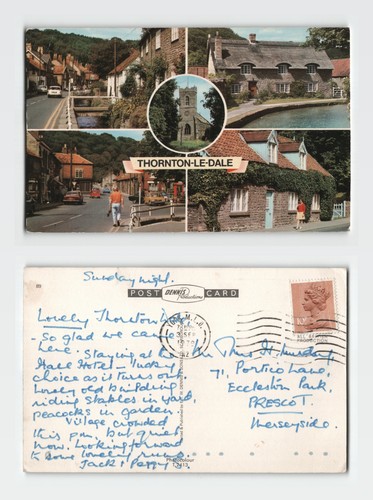 THORNTON-LE-DALE
Sunday night.
POST DENNIS Productions CARD
Lovely Thornton
- So glad we came
here. Staying at
Hall Hotel -
choice as it turns out.
Lovely old building
riding stables in yard,
peacocks in garden
Village crowded
this p.m. but quiet
now. Looking forward
to some lovely runs.
Jack & Peggy
Mr Mrs H.
71, Portico Lane,
Eccleston Park,
PRESCOT.
Merseyside.
Photocolour